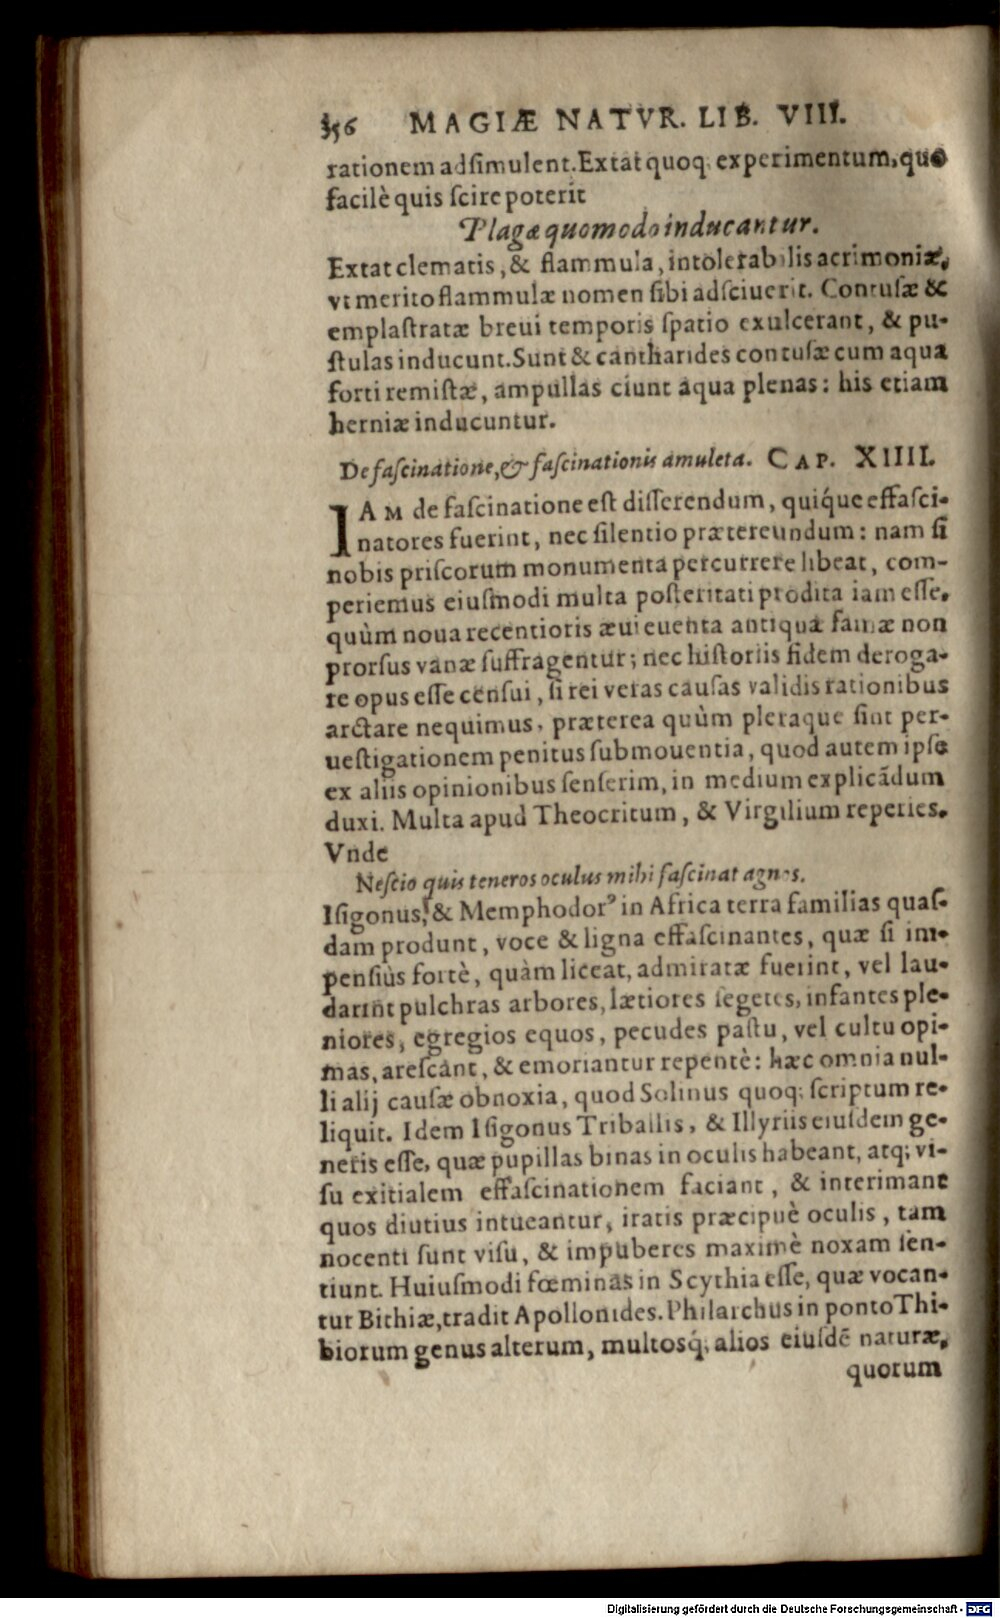 356 MAGIÆ NATVR. LIB. VIII.
rationem adſimulent. Extat quoq; experimentum, quo
facilè quis ſcire poterit
Plagæ quomodo inducantur.
Extat clematis, & flammula, intolerabilis acrimoniæ,
vt merito flammulæ nomen ſibi adſciuerit. Contuſæ &
emplaſtratæ breui temporis ſpatio exulcerant, & pu-
ſtulas inducunt. Sunt & cantharides contuſæ cum aqua
forti remiſtæ, ampullas ciunt aqua plenas: his etiam
herniæ inducuntur.
De faſcinatione, & faſcinationis amuleta. CAP. XIIII.
IAM de faſcinatione eſt diſſerendum, quiq́ue effaſci-
natores fuerint, nec ſilentio prætereundum: nam ſi
nobis priſcorum monumenta percurrere libeat, com-
periemus eiuſmodi multa poſteritati prodita iam eſſe,
quùm noua recentioris æui euenta antiqua famæ non
prorſus vanæ ſuffragentur; nec hiſtoriis fidem deroga-
re opus eſſe cenſui, ſi rei veras cauſas validis rationibus
arctare nequimus, præterea quùm pleraque ſint per-
ueſtigationem penitus ſubmouentia, quod autem ipſe
ex aliis opinionibus ſenſerim, in medium explicādum
duxi. Multa apud Theocritum, & Virgilium reperies.
Vnde
Neſcio quis teneros oculus mihi faſcinat agnos.
Iſigonus, & Memphodorꝰ in Africa terra familias quaſ-
dam produnt, voce & ligna effaſcinantes, quæ ſi im-
penſiùs fortè, quàm liceat, admiratæ fuerint, vel lau-
darint pulchras arbores, lætiores ſegetes, infantes ple-
niores, egregios equos, pecudes paſtu, vel cultu opi-
mas, areſcant, & emoriantur repentè: hæc omnia nul-
li alij cauſæ obnoxia, quod Solinus quoq; ſcriptum re-
liquit. Idem Iſigonus Triballis, & Illyriis eiuſdem ge-
neris eſſe, quæ pupillas binas in oculis habeant, atq; vi-
ſu exitialem effaſcinationem faciant, & interimant
quos diutius intueantur, iratis præcipuè oculis, tam
nocenti ſunt viſu, & impuberes maximè noxam ſen-
tiunt. Huiuſmodi fœminas in Scythia eſſe, quæ vocan-
tur Bithiæ, tradit Apollonides. Philarchus in ponto Thi-
biorum genus alterum, multosq́; alios eiuſdē naturæ,
quorum
Digitalisierung gefördert durch die Deutsche Forschungsgemeinschaft - DFG